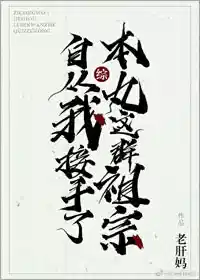 自从我接手了
综
本丸这群祖宗
作品
老肝妈